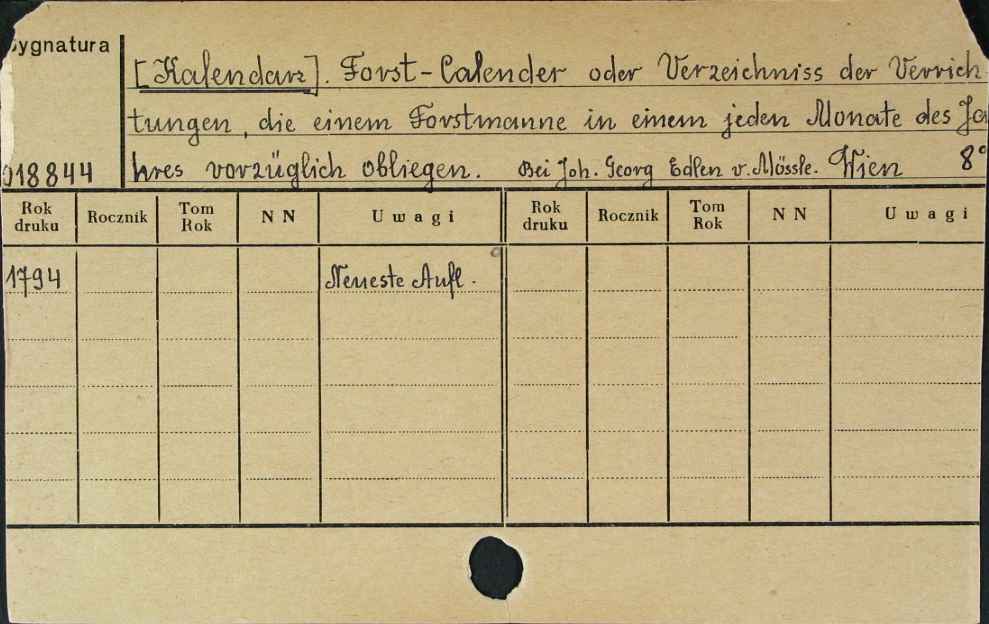 Sygnatura
[Kalendarz]. Forst-Calender oder Verzeichniss der Verrich-
tungen, die einem Forstmanne in einem jeden Monate des Ja
018844 hres vorzüglich obliegen. Bei Joh. Georg Edlen v. Mössle. Wien 8°
Rok druku Rocznik Tom Rok NN Uwagi Rok druku Rocznik Tom Rok NN Uwagi
1794 Neueste Aufl.